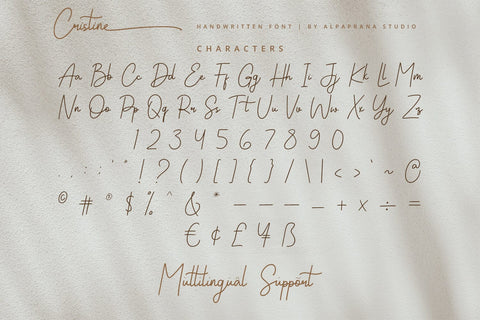 Cristine
HANDWRITTEN FONT | BY ALPAPRANA STUDIO
CHARACTERS
Aa Bb Cc Dd Ee Ff Gg Hh Ii Jj Kk Ll Mm
Nn Oo Pp Qq Rr Ss Tt Uu Vv Ww Xx Yy Zz
1 2 3 4 5 6 7 8 9 0
. , : ; ' " ! ? ( ) [ ] { } / \ | < > ` ~ @
© # ® $ % ^ & * – — — _ + x ÷ =
€ ¢ £ ¥ ß
Multilingual Support